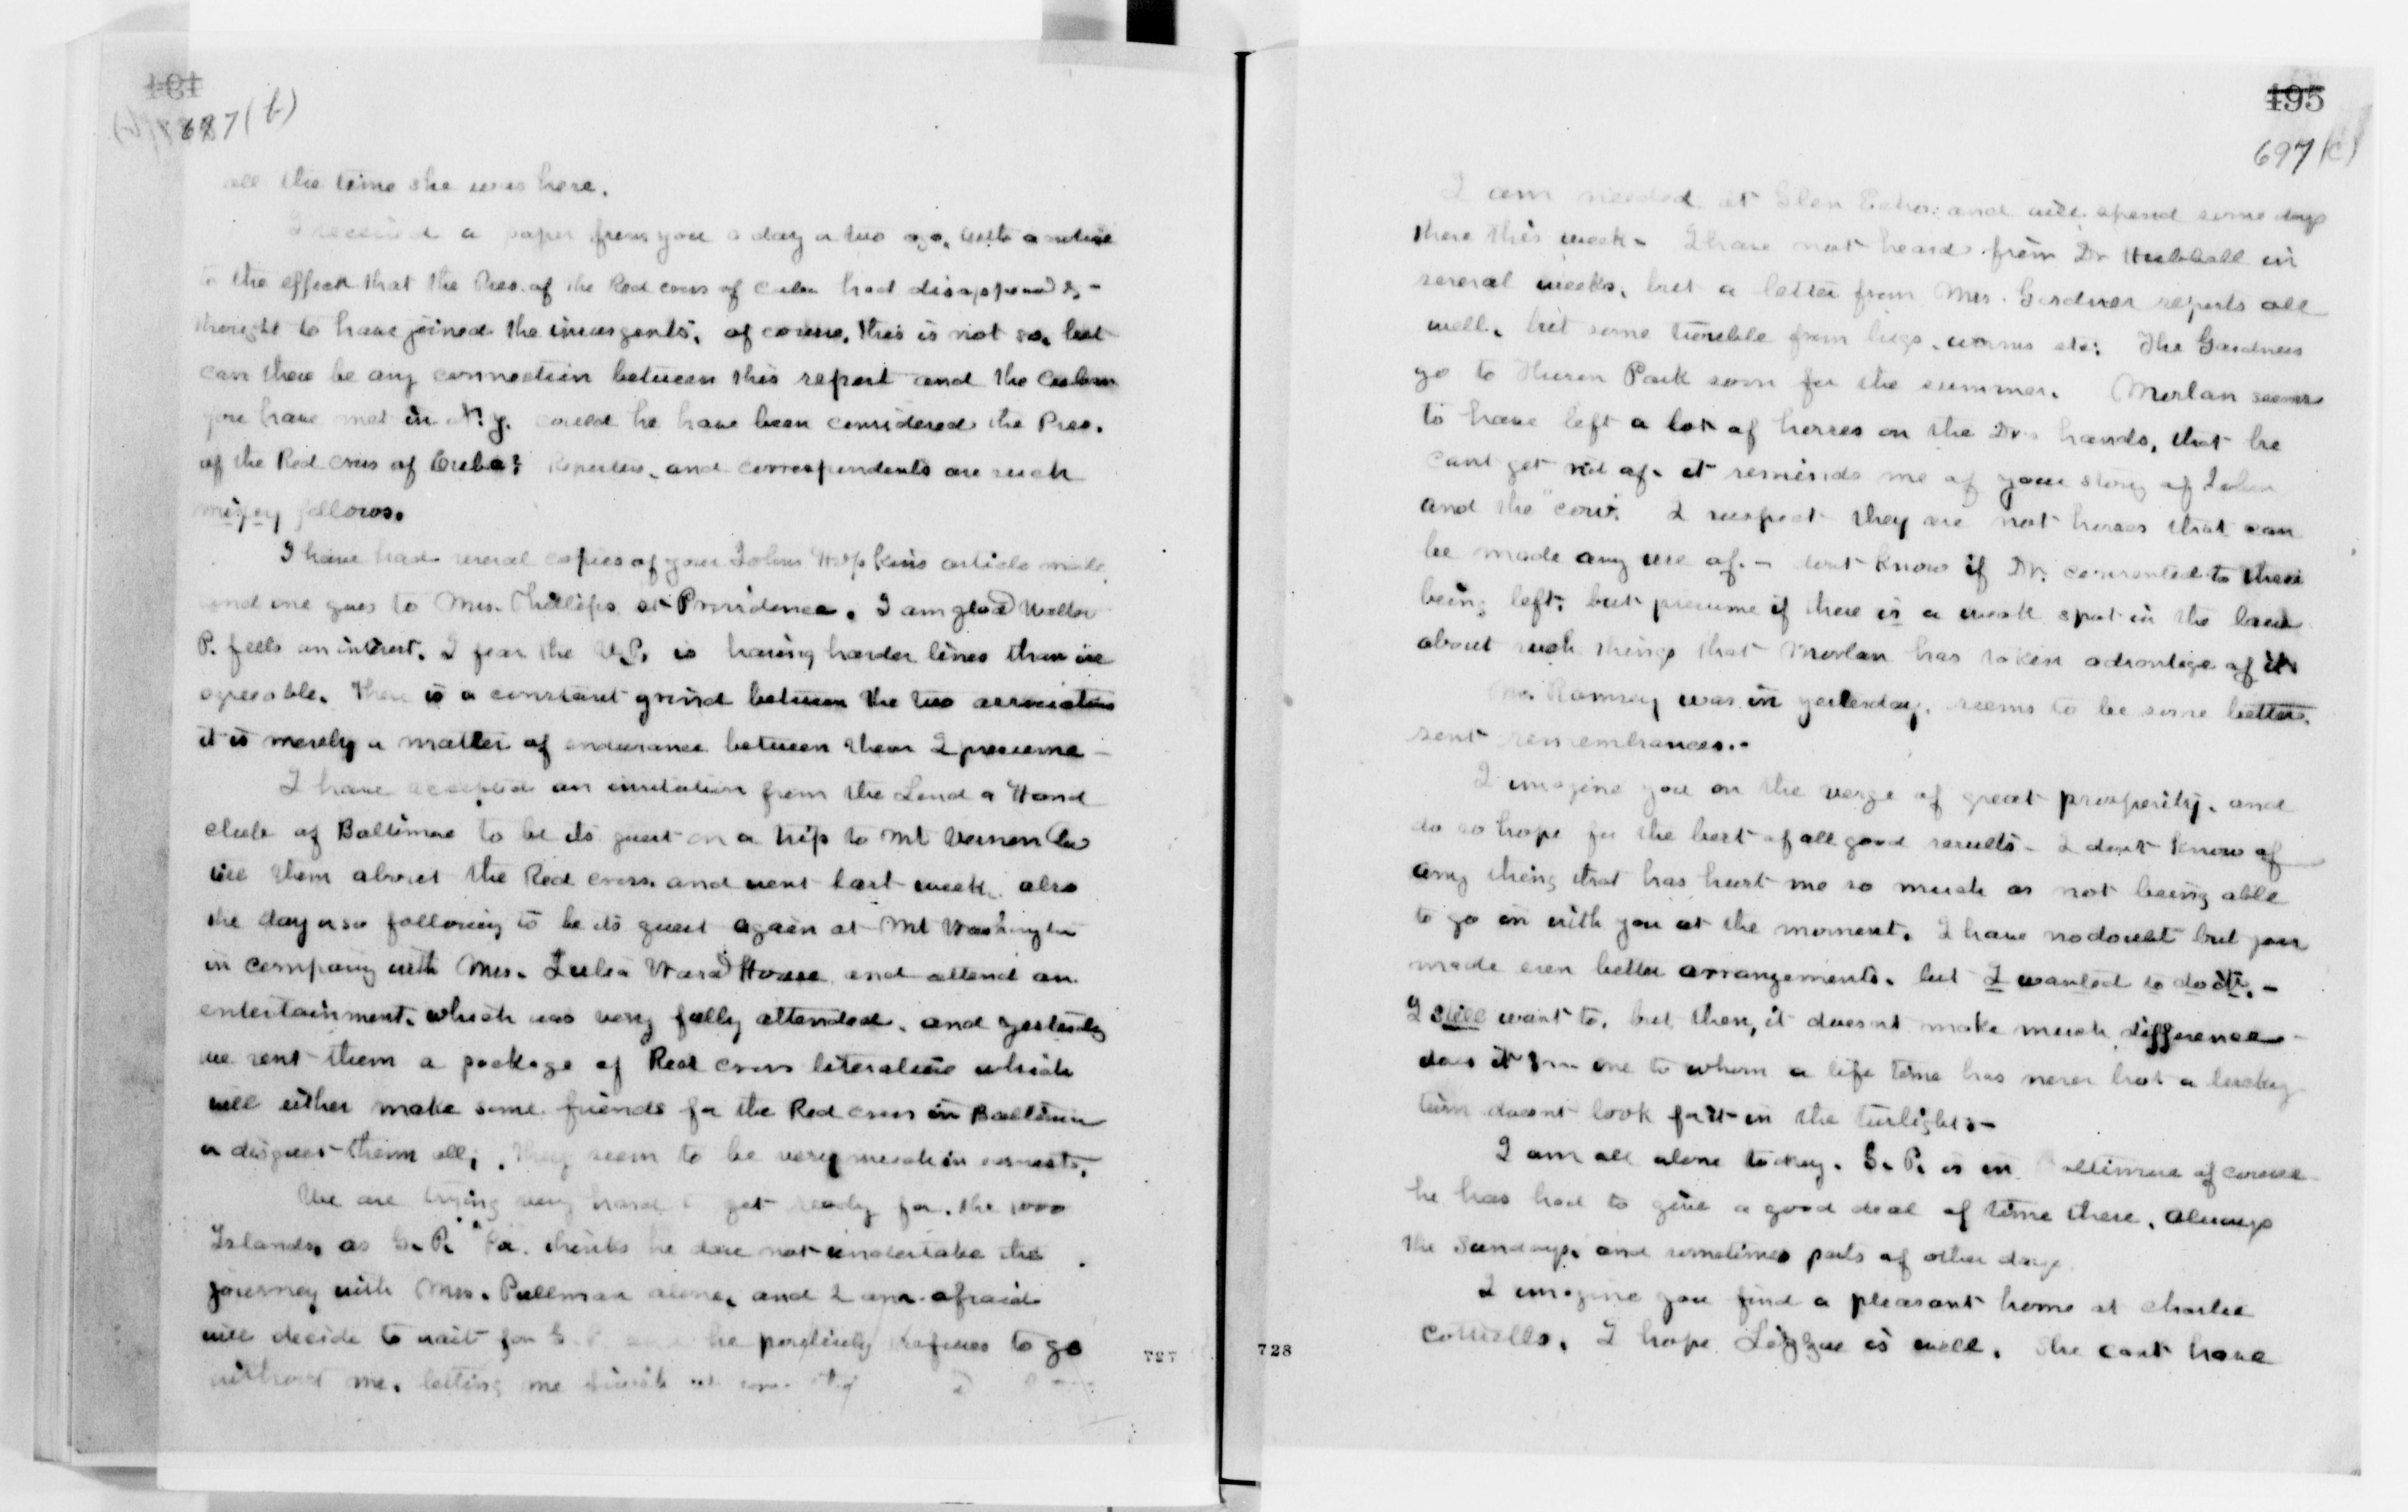 697 (b)
all the time she was here.
I received a paper from you a day or two ago, with a notice
to the effect that the Pres. of the Red cross of Cuba had disappeared &-
thought to have joined the insurgents, of course, this is not so, but
can there be any connection between this report and the Cuban
you have met in N.Y. could he have been considered the Pres.
of the Red cross of Cuba? Reporters, and correspondents are such
fellows.
I have had several copies of your Johns Hopkins article made
and one goes to Mrs. Phillips at Providence. I am glad Walter
P. feels an interest. I fear the U.P. is having harder lines than is
agreeable. There is a constant grind between the two associations
it is merely a matter of endurance between them I presume -
I have accepted an invitation from the Lend a Hand
club of Baltimore to be its guest on a trip to Mt Vernon &
tell them about the Red cross, and went last week. also
the day or so following to be its guest again at Mt Washington
in company with Mrs. Julia Ward Howe and attend an
entertainment, which was very fully attended, and yesterday
we sent them a package of Red cross literature which
will either make some friends for the Red cross in Baltimore
or disgust them all; They seem to be very much in earnest.
We are trying very hard to get ready for the 1000
Islands, as G. P. "Pa." thinks he dare not undertake the
journey with Mrs. Pullman alone, and I am afraid
will decide to wait for G. P. he positively refuses to go
without me. letting me
727
495
697 (c)
I am needed at Glen Echo: and will spend some days
there this week - I have not heard from Dr Hubbell in
several weeks, but a letter from Mrs. Gardner reports all
well, but some trouble from bugs, worms etc: The Gardners
go to Huron Park soon for the summer. Morlan seems
to have left a lot of horses on the Drs hands, that he
cant get rid of. it reminds me of your story of John
and the "cow". I suspect they are not horses that can
be made any use of. - dont know if Dr. consented to their
being left, but presume if there is a weak spot in the law
about such things that Morlan has taken advantage of it.
Mr. Ramsey was in yesterday, seems to be some better.
sent remembrances..
I imagine you on the verge of great prosperity, and
do so hope for the best of all good results - I dont know of
any thing that has hurt me so much as not being able
to go in with you at the moment. I have no doubt but you
made even better arrangements. but I wanted to do it. -
I still want to, but then, it doesnt make much difference -
does it? one to whom a life time has never brot a lucky
turn doesnt look for it in the twilight: -
I am all alone today. G. P. is in Baltimore of course
he has had to give a good deal of time there, always
the Sundays, and sometimes parts of other days
I imagine you find a pleasant home at Charlie
Cottrells, I hope Lizzie is well. She cant have
728